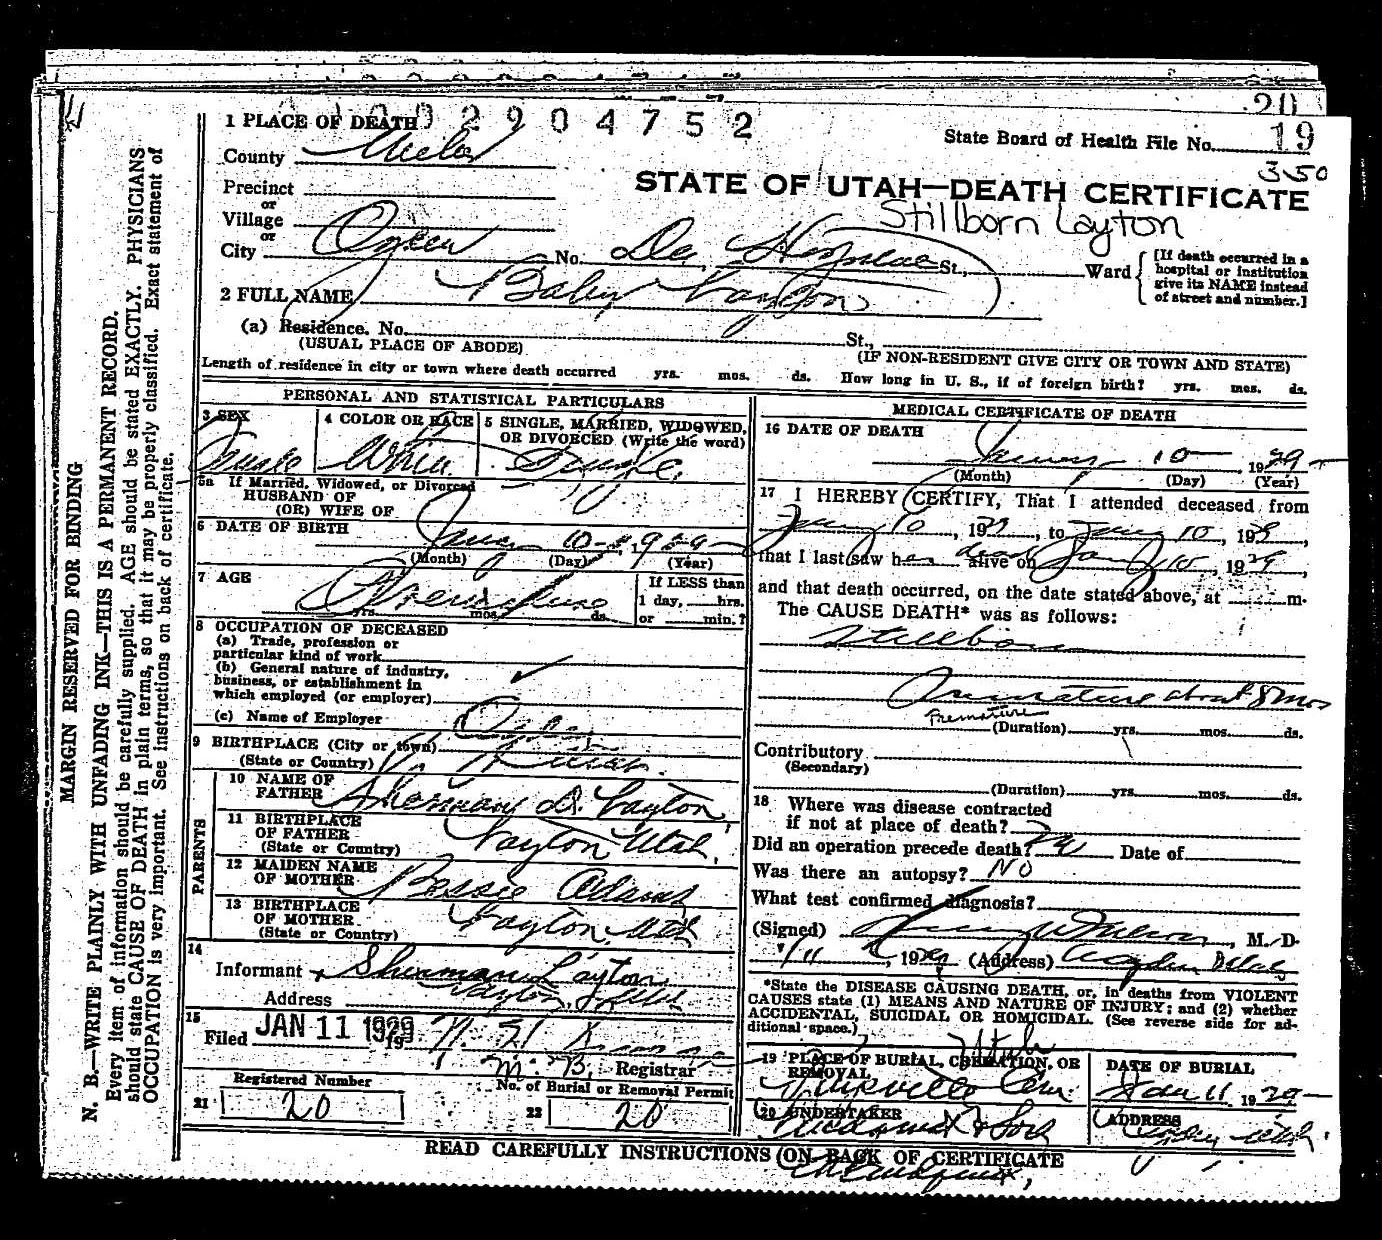 20
2904752
State Board of Health File No. 19
350
1 PLACE OF DEATH
County Weber
STATE OF UTAH—DEATH CERTIFICATE
Precinct
or
Village
Stillborn Layton
or
City Ogden No. Dee Hospital St., Ward
[If death occurred in a hospital or institution give its NAME instead of street and number.]
2 FULL NAME Baby Layton
(a) Residence. No. St.,
(USUAL PLACE OF ABODE) (IF NON-RESIDENT GIVE CITY OR TOWN AND STATE)
Length of residence in city or town where death occurred yrs. mos. ds. How long in U. S., if of foreign birth? yrs. mos. ds.
PERSONAL AND STATISTICAL PARTICULARS
3 SEX
Female
4 COLOR OR RACE
White
5 SINGLE, MARRIED, WIDOWED, OR DIVORCED (Write the word)
Single
5a If Married, Widowed, or Divorced
HUSBAND OF
(OR) WIFE OF
6 DATE OF BIRTH
10 1929
(Month) (Day) (Year)
7 AGE
Premature
yrs. mos. ds.
If LESS than
1 day, hrs.
or min.?
8 OCCUPATION OF DECEASED
(a) Trade, profession or
particular kind of work
(b) General nature of industry,
business, or establishment in
which employed (or employer)
(c) Name of Employer
9 BIRTHPLACE (City or town) Ogden
(State or Country) Utah
PARENTS
10 NAME OF
FATHER Sherman D. Layton
11 BIRTHPLACE
OF FATHER
(State or Country) Layton, Utah.
12 MAIDEN NAME
OF MOTHER Bessie Adams
13 BIRTHPLACE
OF MOTHER
(State or Country) Layton, Utah
14
Informant Sherman Layton
Address Layton, Utah
15
Filed JAN 11 1929 19
Registrar
Registered Number
21 20
No. of Burial or Removal Permit
22 20
MEDICAL CERTIFICATE OF DEATH
16 DATE OF DEATH
10 1929
(Month) (Day) (Year)
17 I HEREBY CERTIFY, That I attended deceased from
10, 1929, to 10, 1929,
that I last saw her dead alive on Jan 10, 1929,
and that death occurred, on the date stated above, at m.
The CAUSE DEATH* was as follows:
Stillborn
Premature about 8 mos
Premature
(Duration) yrs. mos. ds.
Contributory
(Secondary)
(Duration) yrs. mos. ds.
18 Where was disease contracted
if not at place of death?
Did an operation precede death? No Date of
Was there an autopsy? No
What test confirmed diagnosis?
(Signed) , M. D.
1/11, 1929 (Address)
*State the DISEASE CAUSING DEATH, or, in deaths from VIOLENT
CAUSES state (1) MEANS AND NATURE OF INJURY; and (2) whether
ACCIDENTAL, SUICIDAL OR HOMICIDAL. (See reverse side for ad-
ditional space.)
Utah
19 PLACE OF BURIAL, CREMATION, OR
REMOVAL
Cem.
DATE OF BURIAL
Jan 11 1929
20 UNDERTAKER
& Sons
ADDRESS
Ogden Utah.
READ CAREFULLY INSTRUCTIONS ON BACK OF CERTIFICATE
MARGIN RESERVED FOR BINDING
N. B.—WRITE PLAINLY WITH UNFADING INK—THIS IS A PERMANENT RECORD.
Every item of information should be carefully supplied. AGE should be stated EXACTLY. PHYSICIANS
should state CAUSE OF DEATH in plain terms, so that it may be properly classified. Exact statement of
OCCUPATION is very important. See instructions on back of certificate.